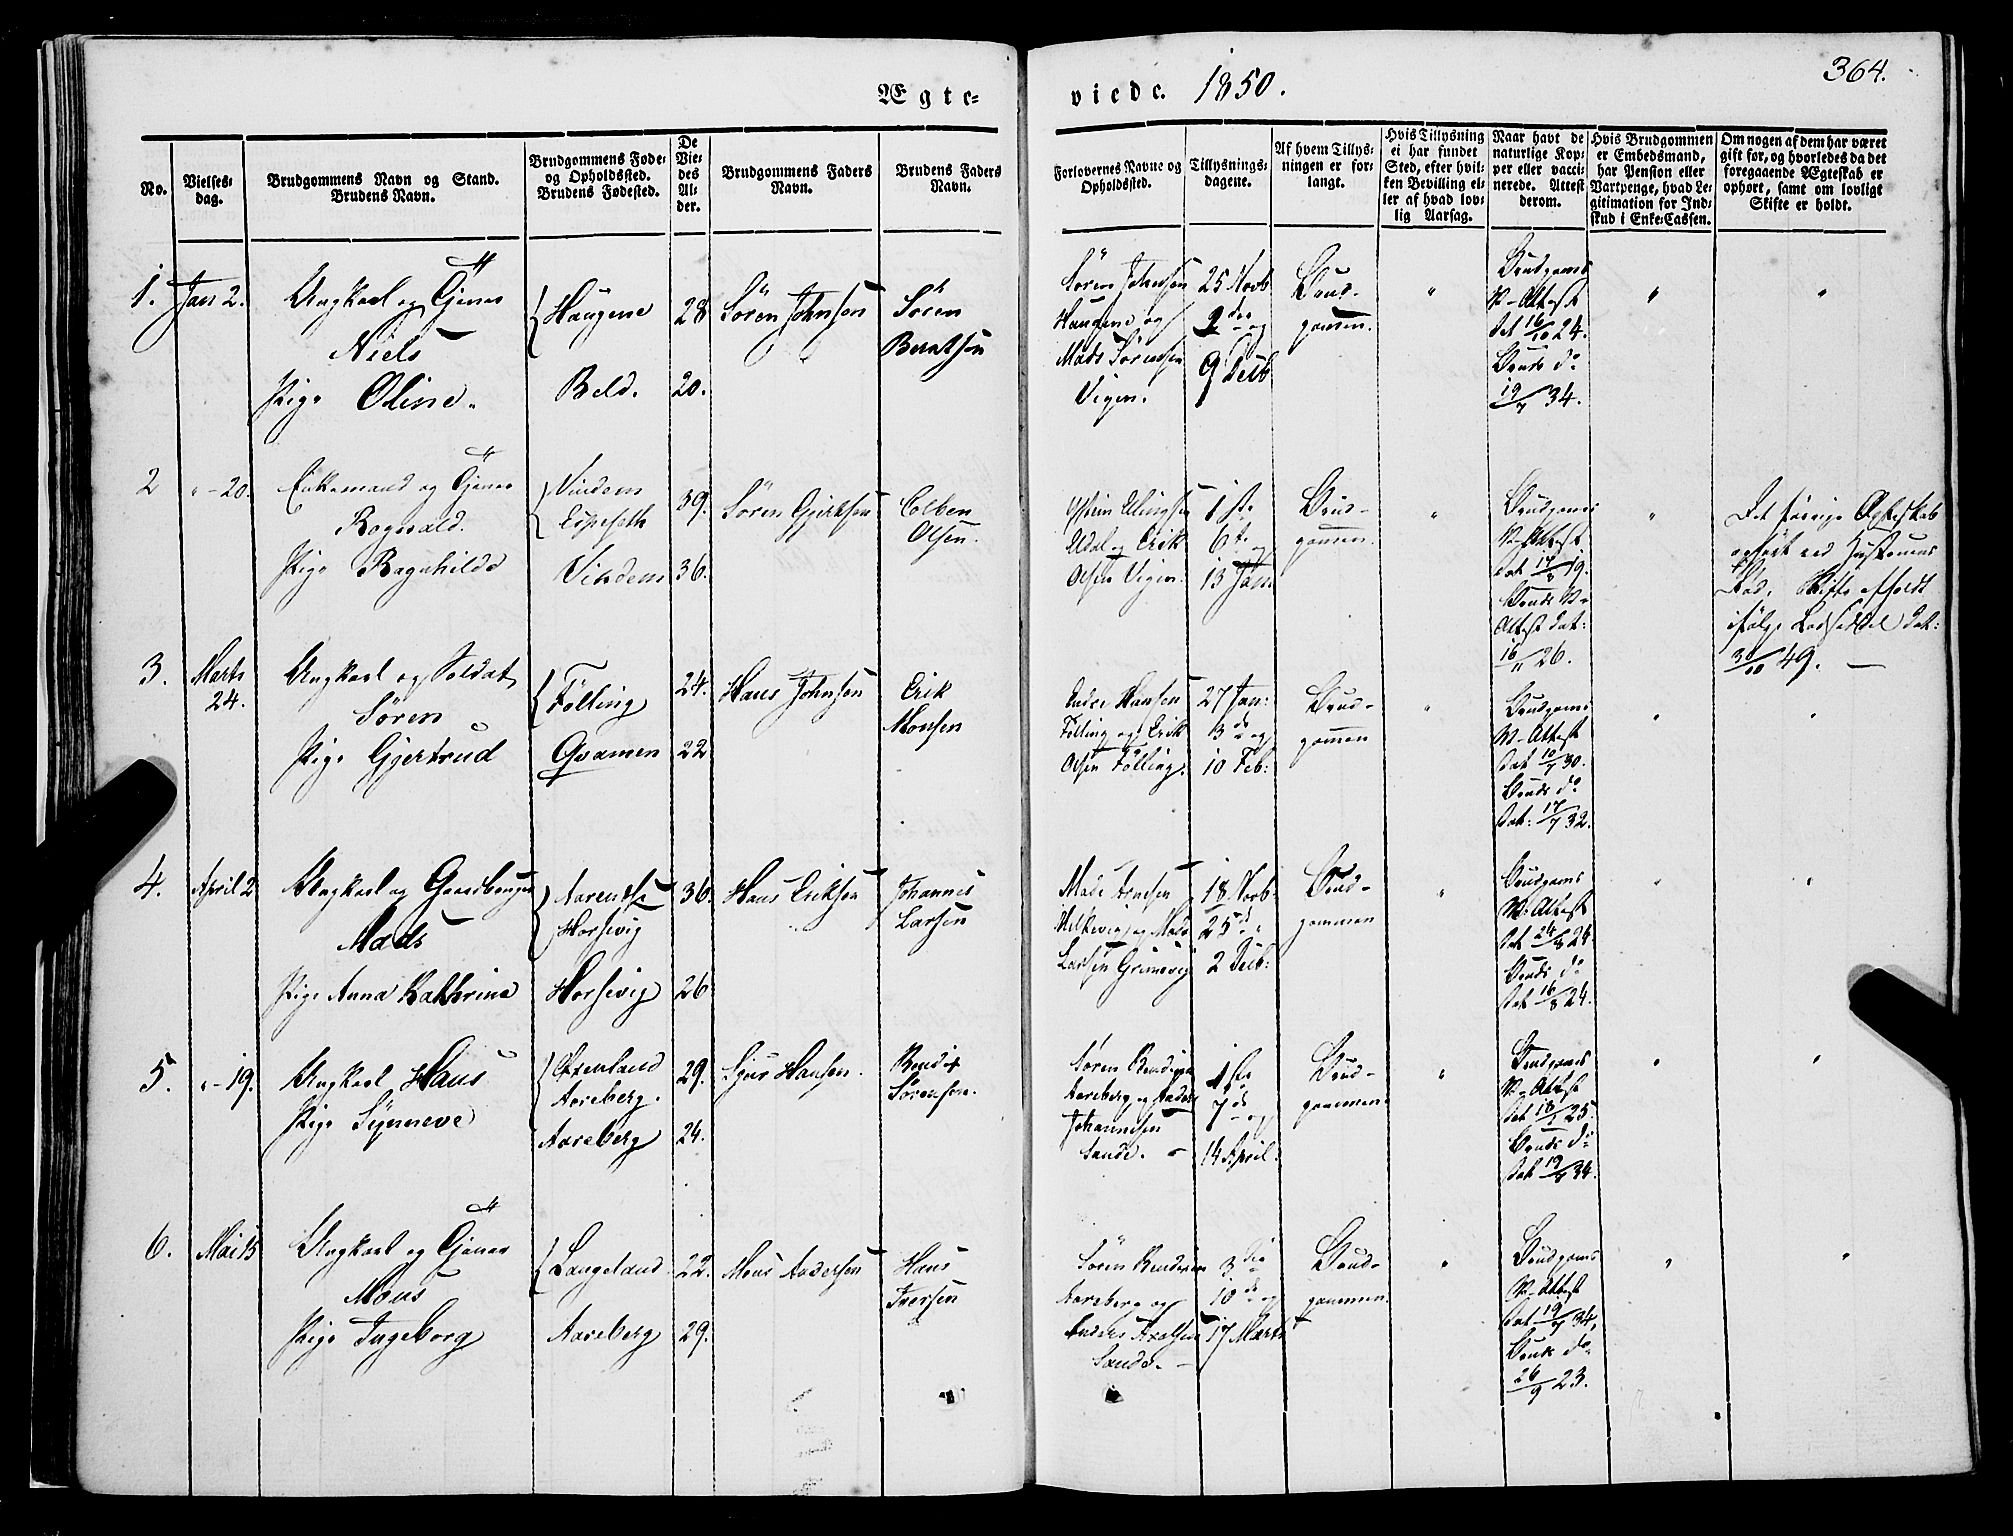 364.
Ægte-
viede. 1850.
No.
Vielses-
dag.
Brudgommens Navn og Stand.
Brudens Navn.
Brudgommens Føde-
og Opholdssted.
Brudens Fødested.
De
Vie-
des
Al-
der.
Brudgommens Faders
Navn.
Brudens Faders
Navn.
Forlovernes Navne og
Opholdssted.
Tillysnings-
dagene.
Af hvem Tillys-
ningen er for-
langt.
Hvis Tillysning
ei har fundet
Sted, efter hvil-
ken Bevilling el-
ler af hvad lov-
lig Aarsag.
Naar havt de
naturlige Kop-
per eller vacci-
nerede. Attest
derom.
Hvis Brudgommen
er Embedsmand,
har Pension eller
Vartpenge, hvad Le-
gitimation for Ind-
skud i Enke-Cassen.
Om nogen af dem har været
gift før, og hvorledes da det
foregaaende Ægteskab er
ophørt, samt om lovligt
Skifte er holdt.
1.
Jan 2.
Ungkarl og Tjener
Niels
Pige Oline.
Haugene
Beld.
28
20.
Sören Johnsen
Sören
Berntsen
Sören Johnsen
Haugene og
Mads Sörensen
Vigen.
25 Novb
2den og
9 Decb
Brud-
gommen.
"
Brudgoms
V-Attest
dat 16/10 24.
Bruds do
19/7 34.
"
"
2
" - 20.
Enkemand og Tjener
Rognald.
Pige Ragnhilde
Vindenes
Espeseth
Vinden
39.
36.
Sören Gjertsen
Colben
Olsen.
og Erik
Olsen Vigen.
1ste
6te og
13 Jan
Brud-
gommen.
"
Brudgoms
V-Attest
dat 17/8 19.
Bruds V-
Attest dat:
16/11 26.
"
Det forrige Ægteskab
ophört ved Hustruens
Död. Skifte afholdt
ifölge dat:
30/10 49. —
3.
Marts
24.
Ungkarl og Soldat
Sören
Pige Gjertrud
Fölling
Qvamen
24.
22
Hans Johnsen
Erik
Monsen
Andre Hansen
Fölling og Erik
Olsen Fölling.
27 Jan:
3de og
10 Feb:
Brud-
gommen
"
Brudgoms
V-Attest
dat 10/7 30.
Bruds do
dat: 17/7 32.
"
"
4.
April 2
Ungkarl og Gaardbruger
Mads
Pige Anna Kathrine
Horsevig
Horsevig
36.
26
Hans Eriksen
Johannes
Larsen
Mads Arnesen
og Mads
Larsen Grimevig
18 Novb:
25de "
2 Decb:
Brud-
gommen
"
Brudgoms
V-Attest
dat 24/8 24
Bruds do
dat 16/8 24.
"
"
5.
" - 19.
Ungkarl Hans
Pige Synneve
Aareberg.
Aareberg
29.
24.
Sjur Hansen.
Bendix
Sörensen.
Sören Bendixen
Aareberg og Anders
Johannesen
Sande. -
1ste
7de og
14 April.
Brud-
gommen
"
Brudgoms
V-Attest
dat 18/7 25.
Bruds do
dat 19/8 34.
"
"
6.
Mai 15
Ungkarl og Tjener
Mons
Pige Ingeborg
Langeland
Aareberg
22.
29.
Mons Andersen
Hans
Iversen
Sören Bendixen
Aareberg og
Anders
Sande. -
3die
10de og
17 Marts
Brud-
gommen.
"
Brudgoms
V-Attest
dat 19/7 34,
Bruds do
26/9 23.
"
"